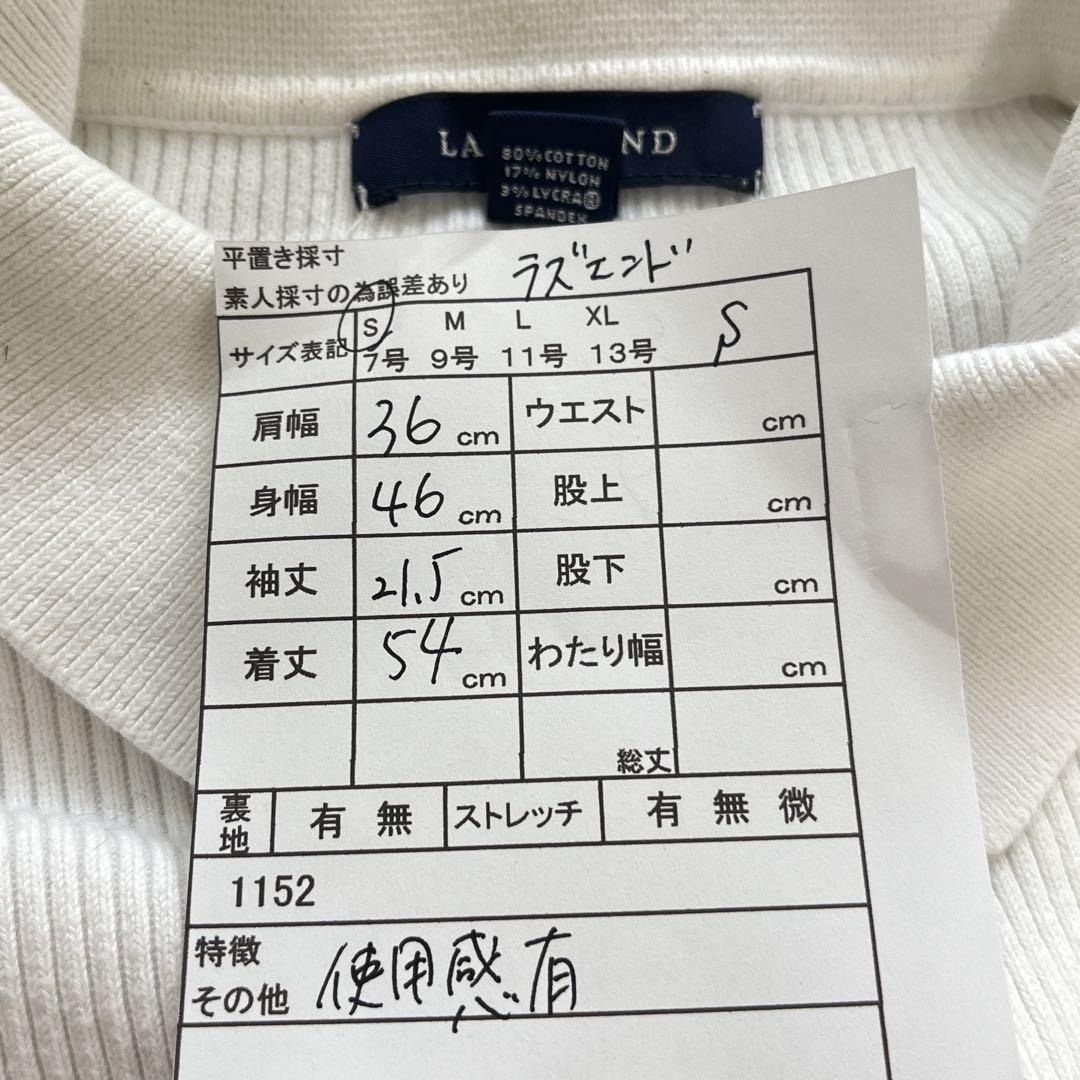 LA ND
80% COTTON
17% NYLON
3% LYCRA®
SPANDEX
平置き採寸
素人採寸の為誤差あり ラズエンド
サイズ表記 S M L XL S
7号 9号 11号 13号
肩幅 36 cm ウエスト cm
身幅 46 cm 股上 cm
袖丈 21.5 cm 股下 cm
着丈 54 cm わたり幅 cm
総丈
裏地 有 無 ストレッチ 有 無 微
1152
特徴
その他 使用感有